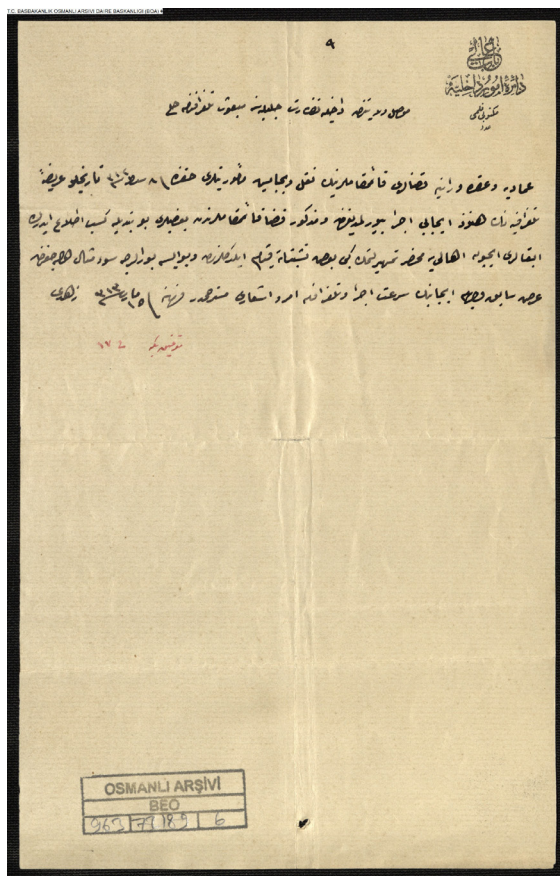 T.C. BAŞBAKANLIK OSMANLI ARŞİVİ DAİRE BAŞKANLIĞI (BOA)
٩
باب عالی
دائرۀ امور داخلیه
مكتوبی قلمی
عدد
موصل ولایتندن داخلیه نظارت جلیله سنه مبعوث تلغرافنامه حلی
عمادیه و عقره و رانیه قضالری قائمقاملرینك نقل و بجایش مأموریتلری حقنده ٨ شباط ٣١٢ تاریخلو عریضۀ
تلغرافیه نك هنوز ایجابی اجرا بیورلمدیغندن ومذكور قضا قائمقاملرندن بعضیلری بو تبدیله كسب اطلاع ایدرك
ابقالری ایچون اهالی یه محضر تمهیر ایتدیرمك كبی بعض تشبثاته قیام ایلدكلرندن وبو ایسه بورالرجه سوء مثال اوله جغندن
عرض سابق وجهله ایجابنك سرعت اجرا وتلغرافله امر و اشعاری مسترحمدر فرمان ١٥ مارت ٣١٣ زهدی
توفیق بك ١٧
OSMANLI ARŞİVİ
BEO
963 | 72189 | 6